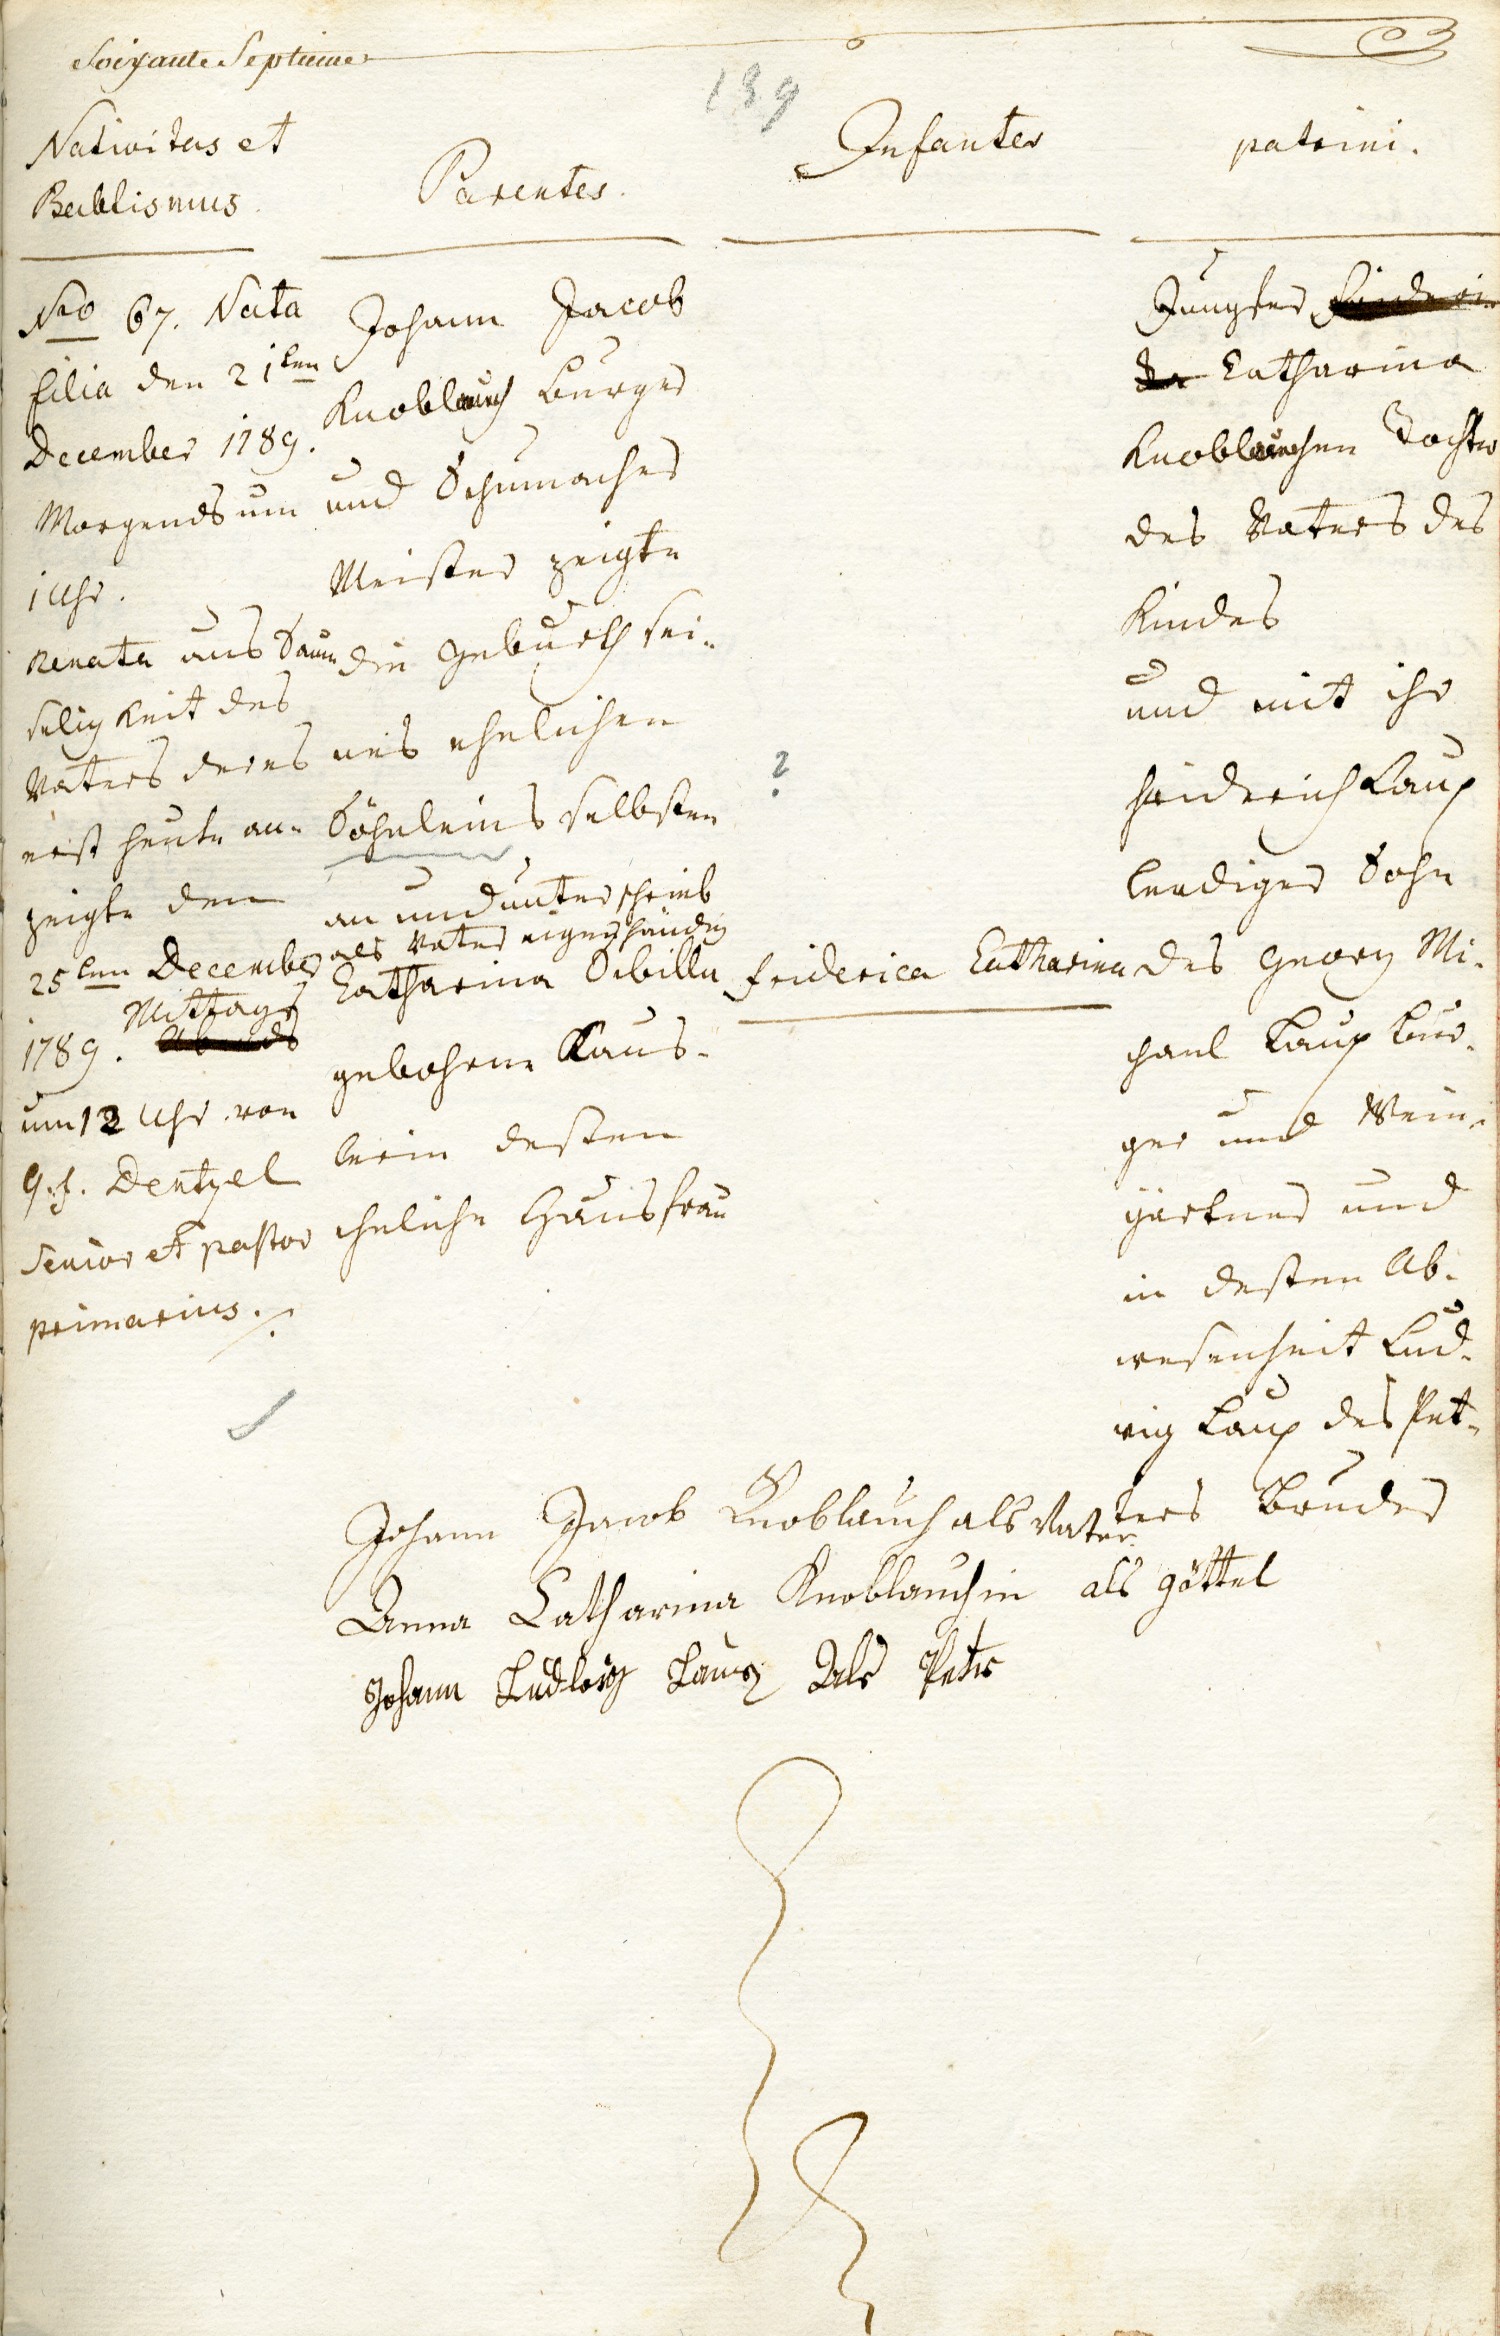 Soixante Septieme
139
Nativitas et
Babtismus.
Parentes.
Infantes
patrini.
Nro 67. Nata
filia den 21ten
December 1789.
Morgends um
1 Uhr.
Renata aus Saum
seligkeit des
Vaters deres
erst heute an-
zeigte den
25ten December
Mittags
1789. Abends
um 12 Uhr von
G. f. Dentzel
Senior et pastor
primarius.
Johann Jacob
Knoblauch Burger
und Schumacher
Meister zeigte
die Geburth sei-
nes ehelichen
Söhnleins selbsten
an und unterschrieb
als Vater eigenhändig
Catharina Sibilla
gebohrne Kaus-
lerin dessen
eheliche Hausfrau
?
Friderica Catharina
Jungfer Frideri-
ca Catharina
Knoblauchen Tochter
des Vaters des
Kindes
und mit ihr
Friderich Laux
lediger Sohn
des Georg Mi-
chael Laux Bur-
ger und Wein-
gärtner und
in dessen Ab-
wesenheit Lud-
wig Laux des Pet-
ters Bruder
Johann Jacob Knoblauch als Vater
Anna Catharina Knoblauchin als göttel
Johann Ludwig Laux Als Peter